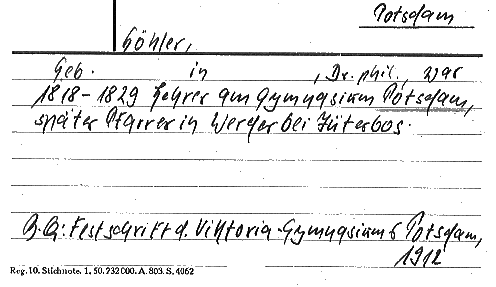 Potsdam
Göhler,
Geb. in , Dr. phil., war
1818-1829 Lehrer am Gymnasium Potsdam,
später Pfarrer in Werder bei Jüterbog.
Festschrift d. Viktoria-Gymnasiums Potsdam,
1912
Reg. 10. Stichnote. 1. 50. 732 000. A. 803. S. 4062